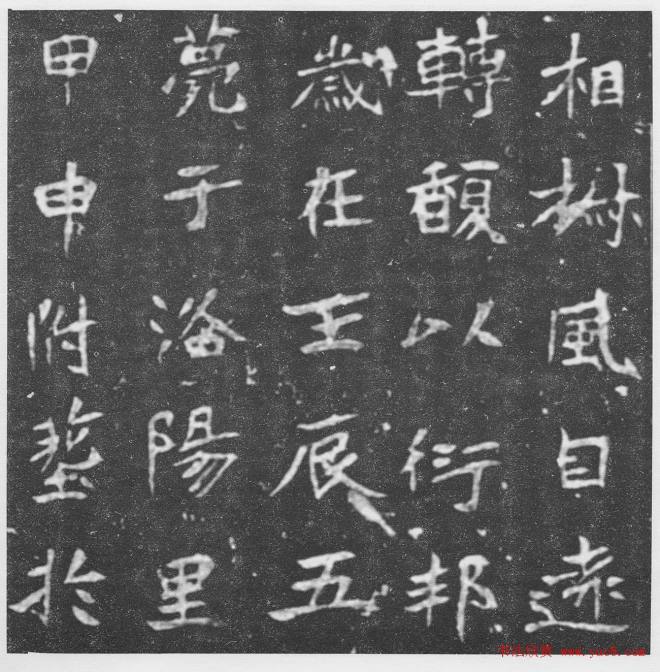 相風目遠
轉馥以衍邦
歲在王辰五
薨于洛陽里
甲申附塟於
书法欣赏 www.yac8.com